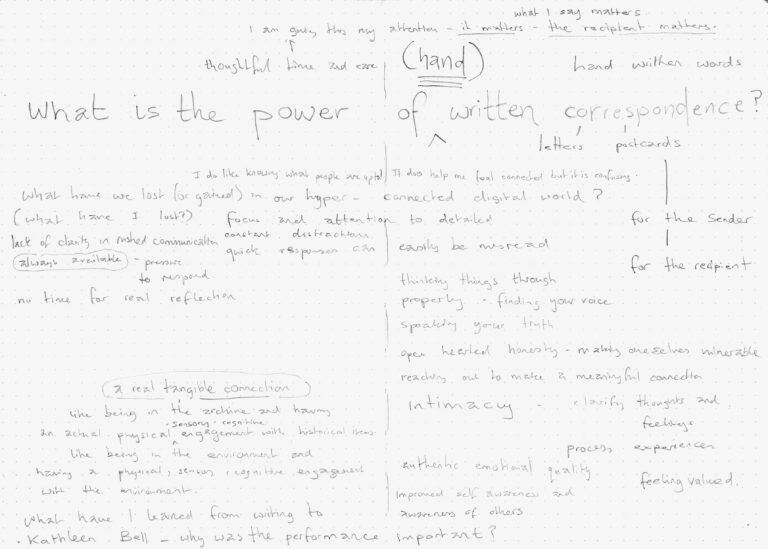 what I say matters
I am giving this my attention - it matters - the recipient matters.
thoughtful time and care
(hand)
hand written words
what is the power of written correspondence?
letters postcards
I do like knowing what people are upto! It does help me feel connected but it is confusing.
what have we lost (or gained) in our hyper-connected digital world?
(what have I lost?) focus and attention to detailed
for the sender
lack of clarity in rushed communication constant distraction
quick responses can easily be misread
always available - pressure
to respond
for the recipient
no time for real reflection
thinking things through
properly - finding your voice
speaking your truth
open hearted honesty - making oneselves vulnerable
reaching out to make a meaningful connection
(a real tangible connection)
like being in the archive and having
sensory cognitive
an actual physical engagement with historical items.
like being in the environment and
having a physical, sensory, cognitive engagement
with the environment.
intimacy - clarify thoughts and
feelings
process experiences
authentic emotional quality
feeling valued.
improved self awareness and
awareness of others
what have I learned from writing to
Kathleen Bell - why was the performance important?